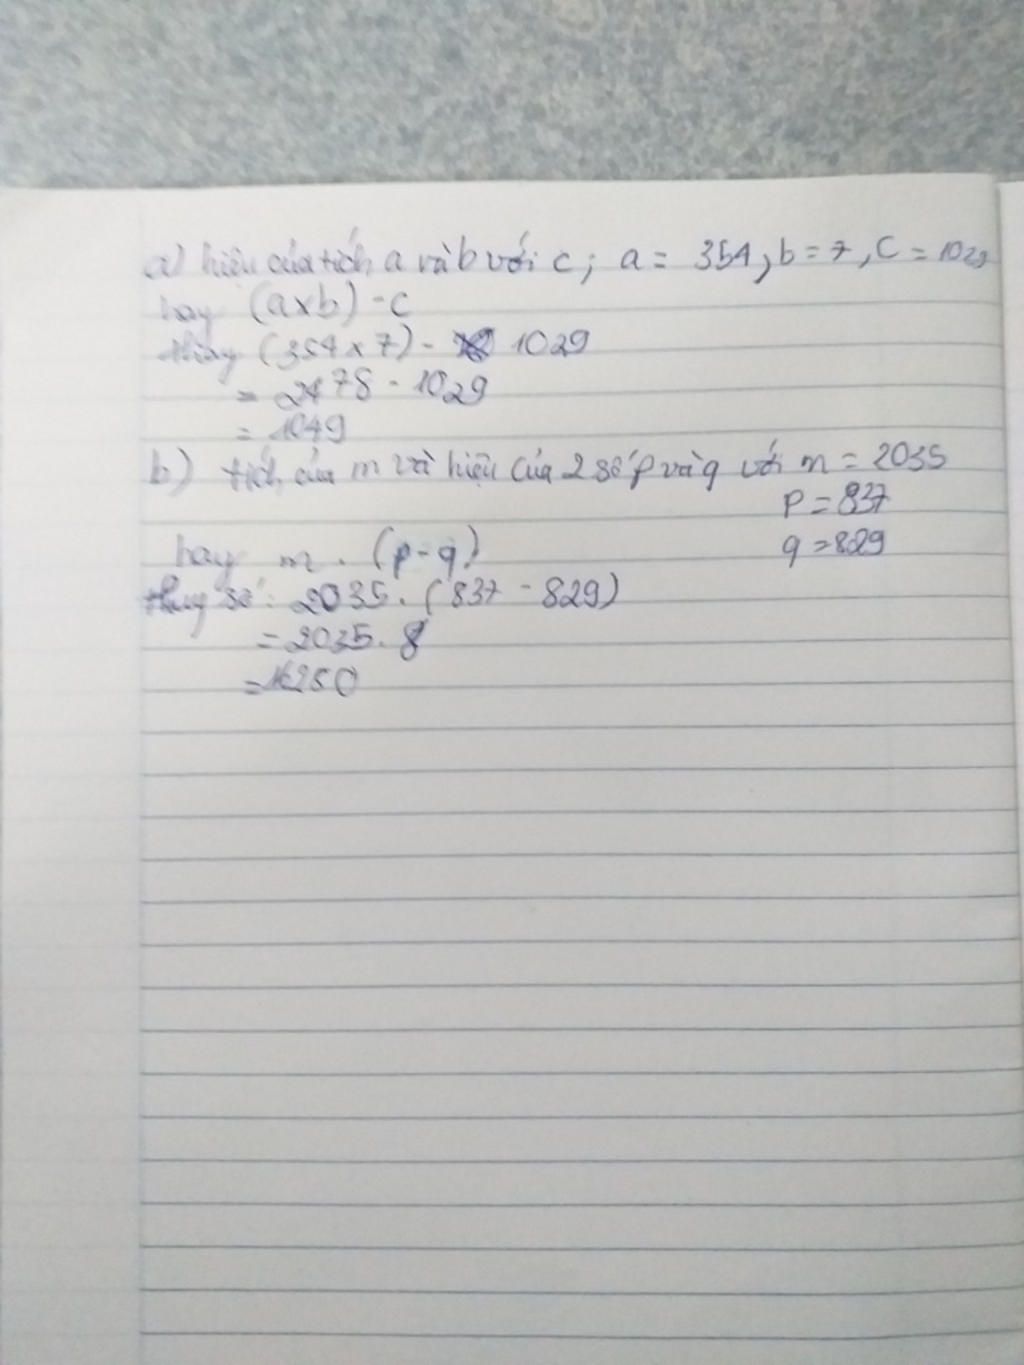 a) hiệu của tích a và b với c; a = 354, b = 7, C = 1029
hay (a x b) - C
thay (354 x 7) - 1029
= 2478 - 1029
= 1049
b) tích của m và hiệu của 2 số p và q với m = 2035
P = 837
q = 829
hay m . (p - q)
thay số: 2035. (837 - 829)
= 2035. 8
= 16250